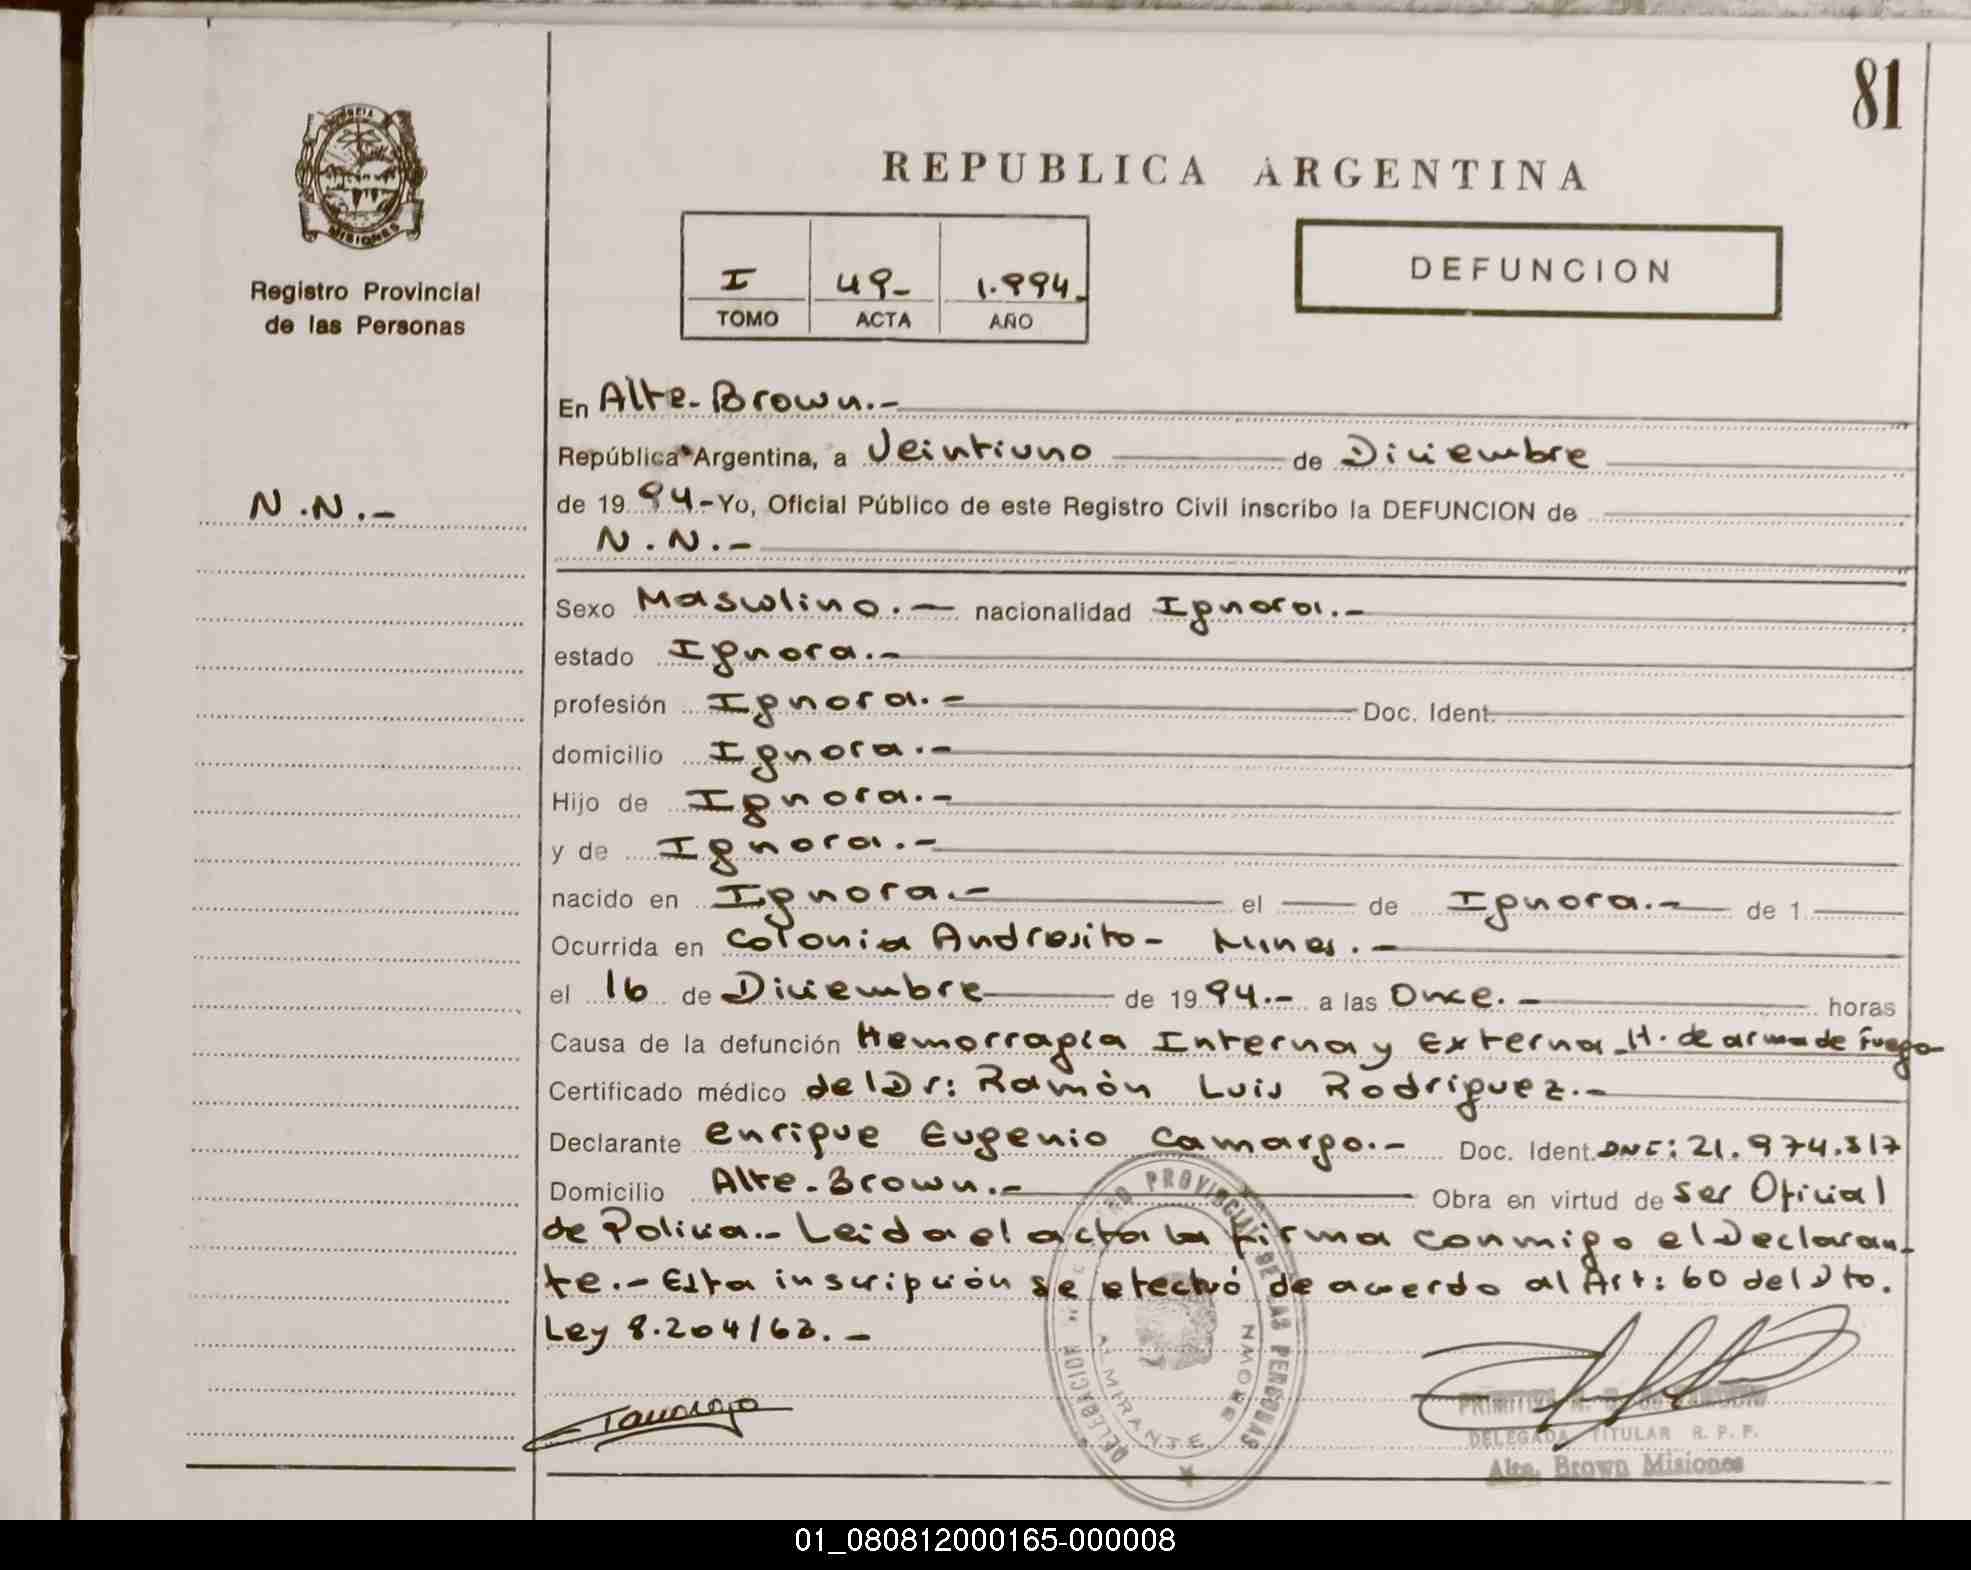 81
PROVINCIA
MISIONES
Registro Provincial
de las Personas
REPUBLICA ARGENTINA
I 49- 1.994.-
TOMO ACTA AÑO
DEFUNCION
En Alte. Brown.-
República Argentina, a Veintiuno de Diciembre
N.N.-
de 1994.- Yo, Oficial Público de este Registro Civil inscribo la DEFUNCION de
N.N.-
Sexo Masculino.- nacionalidad Ignora.-
estado Ignora.-
profesión Ignora.- Doc. Ident.
domicilio Ignora.-
Hijo de Ignora.-
y de Ignora.-
nacido en Ignora.- el de Ignora.- de 1
Ocurrida en Colonia Andresito-
el 16 de Diciembre de 1994.- a las Once.- horas
Causa de la defunción Hemorragia Interna y Externa - H. de arma de fuego
Certificado médico del Dr: Ramón Luis Rodríguez.-
Declarante Enrique Eugenio Camargo.- Doc. Ident. DNI: 21.974.317
Domicilio Alte. Brown.- Obra en virtud de ser Oficial
de Policia.- Leida el acta la firma conmigo el Declaran-
te.- Esta inscripción se efectuó de acuerdo al Art: 60 del Dto.
Ley 8.204/63.-
DELEGACION REGISTRO PROVINCIAL DE LAS PERSONAS
ALMIRANTE BROWN
DELEGADA TITULAR R. P. P.
Alte. Brown Misiones
01_080812000165-000008